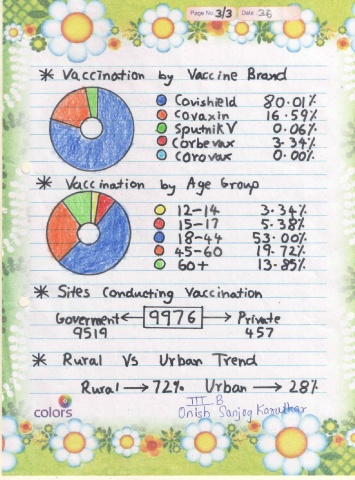 Page No. 3/3 Date: 26
* Vaccination by Vaccine Brand
Covishield 80.01%
Covaxin 16.59%
Sputnik V 0.06%
Corbevax 3.34%
Covovax 0.00%
* Vaccination by Age Group
12-14 3.34%
15-17 5.38%
18-44 53.00%
45-60 19.72%
60+ 13.85%
* Sites Conducting Vaccination
Goverment ← 9976 → Private
9519 457
* Rural Vs Urban Trend
Rural → 72% Urban → 28%
colors
III B
Onish Sanjog